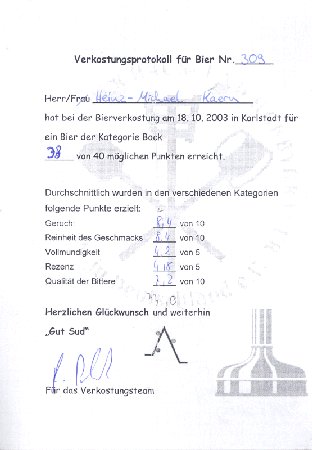 Verkostungsprotokoll für Bier Nr. 309
Herr/Frau Heinz-Michael
hat bei der Bierverkostung am 18.10.2003 in Karlstadt für
ein Bier der Kategorie Bock
38 von 40 möglichen Punkten erreicht.
Durchschnittlich wurden in den verschiedenen Kategorien
folgende Punkte erzielt:
Geruch 8,4 von 10
Reinheit des Geschmacks 8,4 von 10
Vollmundigkeit 4,2 von 5
Rezenz 4,8 von 5
Qualität der Bittere 7,2 von 10
Herzlichen Glückwunsch und weiterhin
„Gut Sud"
Für das Verkostungsteam